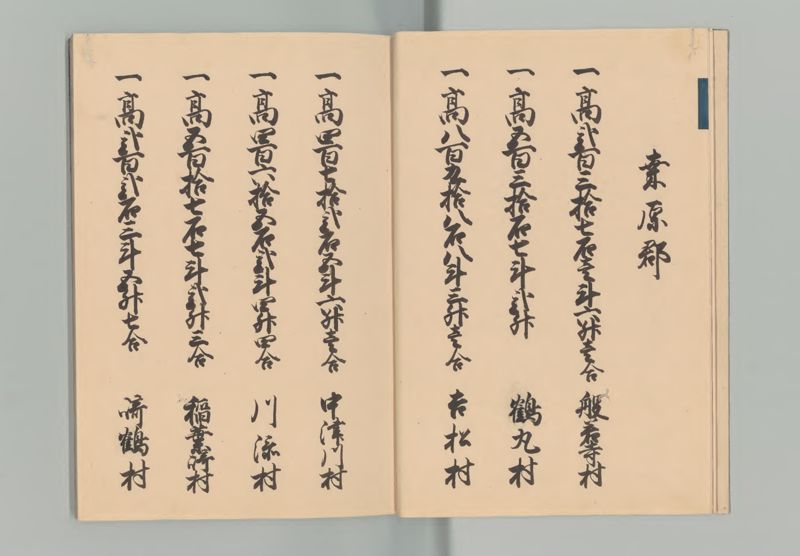 桒原郡
一高弐百三拾七石壱斗六升壱合 般若寺村
一高五百三拾石七斗弐升 鶴丸村
一高八百九拾八石八斗三升壱合 吉松村
一高四百七拾弐石五斗六升壱合 中津川村
一高四百六拾五石弐斗四升四合 川添村
一高五百拾七石七斗弐升三合 稲葉崎村
一高弐百弐石三斗五升七合 崎鶴村